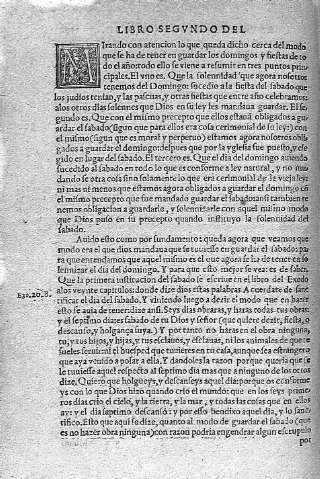 LIBRO SEGVNDO DEL
MIrando con atencion lo que queda dicho cerca del modo
que se ha de tener en guardar los domingos y fiestas de to
do el año: todo ello se viene a resumir en tres puntos prin
cipales. El vno es. Que la solennidad que agora nosotros
tenemos del Domingo sucedio a la fiesta del sabado que
los judios tenian, y las pascuas, y otras fiestas que entre año celebramos:
a los otros dias solennes que Dios en su ley les mandaua guardar. El se-
gundo es. Que con el mismo precepto que ellos estauā obligados a gu
ardar el sabado (sigun que para ellos era cosa cerimonial de su ley) con
el mismo (sigun que es moral y perpetuo) estamos agora nosotros oblig
gados a guardar el domingo: despues que por la yglesia fue puesto, y ele
gido en lugar del sabado. El tercero es. Que el dia del domingo auiendo
sucedido al sabado en todo lo que es conforme a ley natural, y no mu-
dando se otra cosa sino solamente lo que era cerimonial de la vieja ley:
ni mas ni menos que estamos agora obligados a guardar el domingo cō
el mismo precepto que fue mandado guardar el sabado: ansi tambien te
nemos obligacion a guardarle, y solennizarle con aquel mismo modo
que Dios puso en su precepto quando instituyo la solennidad del
sabado.
Auido esto como por fundamento: queda agora que veamos que
modo era el que dios mandaua que se tuuiesse en guardar el sabado: pa
ra que entendamos que aquel mismo es el que agora se ha de tener en so
lennizar el dia del domingo. Y para que esto mejor se vea: es de saber.
Que la primera institucion del sabado se escriue en el libro del Exodo
Exo. 20. 8.
a los veynte capitulos: donde dize dios estas palabras. Acuerdate de sanc
tificar el dia del sabado. Y viniendo luego a dezir el modo que en hazer
esto se auia de tener dize ansi. Seys dias obraras, y haras todas tus obras:
y el septimo dia es sabado de tu Dios y señor (que quiere dezir, fiesta, o
descanso, y holgança suya.) Y por tanto no haras en el obra ninguna,
tu, y tus hijos, y hijas, y tus esclauos, y esclauas, ni los animales de que te
sueles seruir: ni el huesped que tuuieres en tu casa, aunque sea estrangero
que aya venido a posar a ella. Y dandoles la razon porque queria que se
le tuuiesse aquel respecto al septimo dia mas que a ninguno de los otros
dize. Quiero que holgueys, y descanseys aquel dia: porque os conforme
ys con lo que Dios hizo quando crio el mundo: que en los seys prime-
ros dias crio el cielo, y la tierra, y la mar, y todas las cosas que en ellos
ay: y el dia septimo descanso: y por esso bendixo aquel dia, y lo sanc
tifico. Esto que aqui se dize, quanto al modo de guardar el sabado (que
es no hazer obra ninguna) con razon podria engendrar algun escrupulo
por